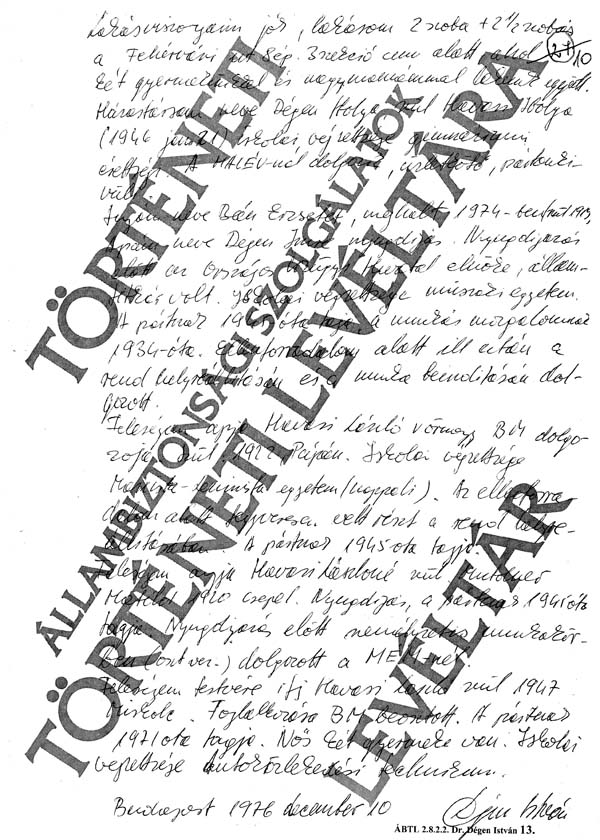 Lakásviszonyaim jók, lakásom 2 szoba + 2 1/2 szobás
a Fehérvári út cím alatt ahol
10
két gyermekünkkel és nagymamámmal lakunk együtt.
Házastársam neve Dégen Ibolya szül Havasi Ibolya
(1946 ) iskolai végzettsége gimnáziumi
érettségi. A MALÉV-nál dolgozik, üzletkötő, pártonkí-
vüli.
Anyám neve Beér Erzsébet, meghalt 1974-ben
Apám neve Dégen Imre nyugdíjas. Nyugdíjazás
előtt az Országos Vízügyi Hivatal elnöke, állam-
titkár volt. Iskolai végzettsége műszaki egyetem.
A pártnak 1945 óta tagja, a munkás mozgalomnak
1934-óta. Ellenforradalom alatt ill után a
rend helyreállításán és a munka beindításán dol-
gozott.
Feleségem apja Havasi László BM dolgo-
zója, szül 1922, Pápán. Iskolai végzettsége
Marxista-leninista egyetem (nappali). Az ellenforra-
dalom alatt fegyveresen vett részt a rend helyre-
állításában. A pártnak 1945 óta tagja.
Feleségem anyja Havasi Lászlóné szül
Matild 1920 Csepel. Nyugdíjas, a pártnak 1945 óta
tagja. Nyugdíjazás előtt személyzetis munkakör-
ben (oszt. vez.) dolgozott a MÉM-nél
Feleségem testvére ifj Havasi László szül 1947
Miskolc. Foglalkozása BM beosztott. A pártnak
1971 óta tagja. Nős két gyermeke van. Iskolai
végzettsége autóközlekedési technikum.
Budapest 1976 december 10 Dégen István
ÁBTL 2.8.2.2. Dr. Dégen István 13.
ÁLLAMBIZTONSÁGI SZOLGÁLATOK
TÖRTÉNETI LEVÉLTÁRA
TÖRTÉNETI LEVÉLTÁR